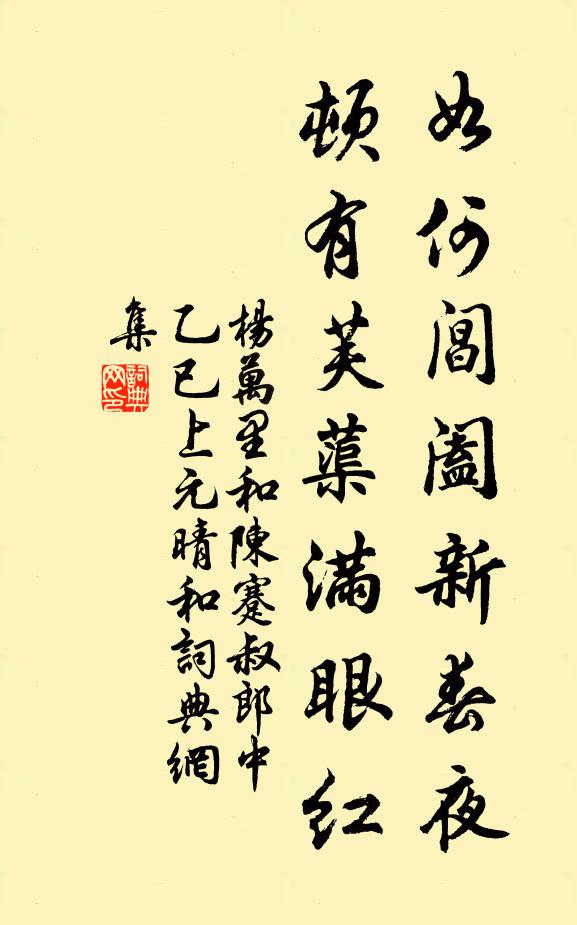 如何閶闔新春夜
頓有芙蕖滿眼紅
楊萬里和陳蹇叔郎中
乙巳上元晴和詞典網
集
詞典
网印